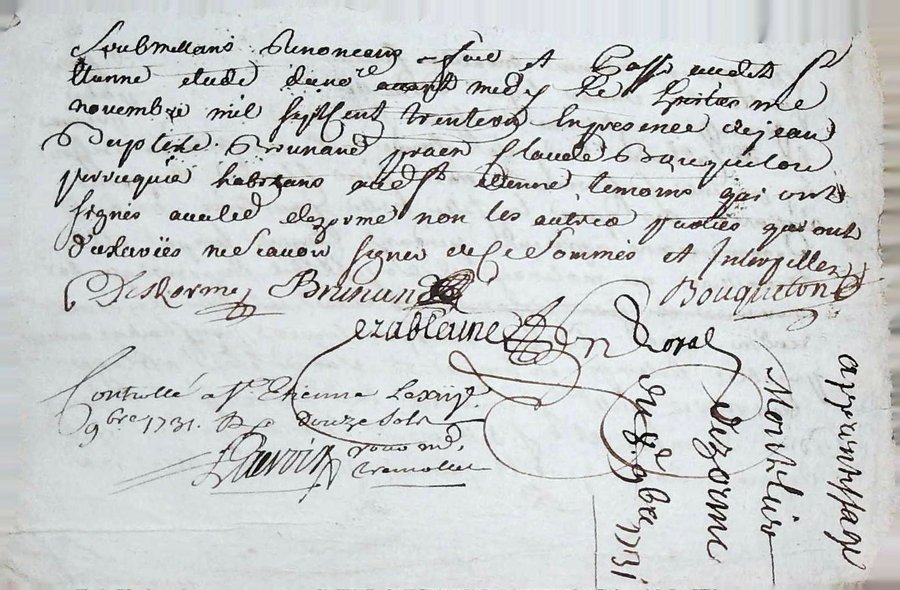 Soubmettans Renonceans &c fait et Passé audit St
Etienne etude du no.re avant medy le huitie me
novembre mil sept cent trente un En presence de jean
Baptiste Brunand praen Claude Bouqueton
perruquie habitans aud St etienne temoins qui ont
signes avec led dezorme non les autres parties qui ont
declarées ne scavoir signer de ce Sommés et Interpellez
Deshormes Brunand Bouqueton
ezableune n Royal
Controllé a St Etienne Le xiij
9bre 1731. R douze Sols
vous md
Tremollet
du 8e 9bre 1731
dezorme
Montelier
apprentissage